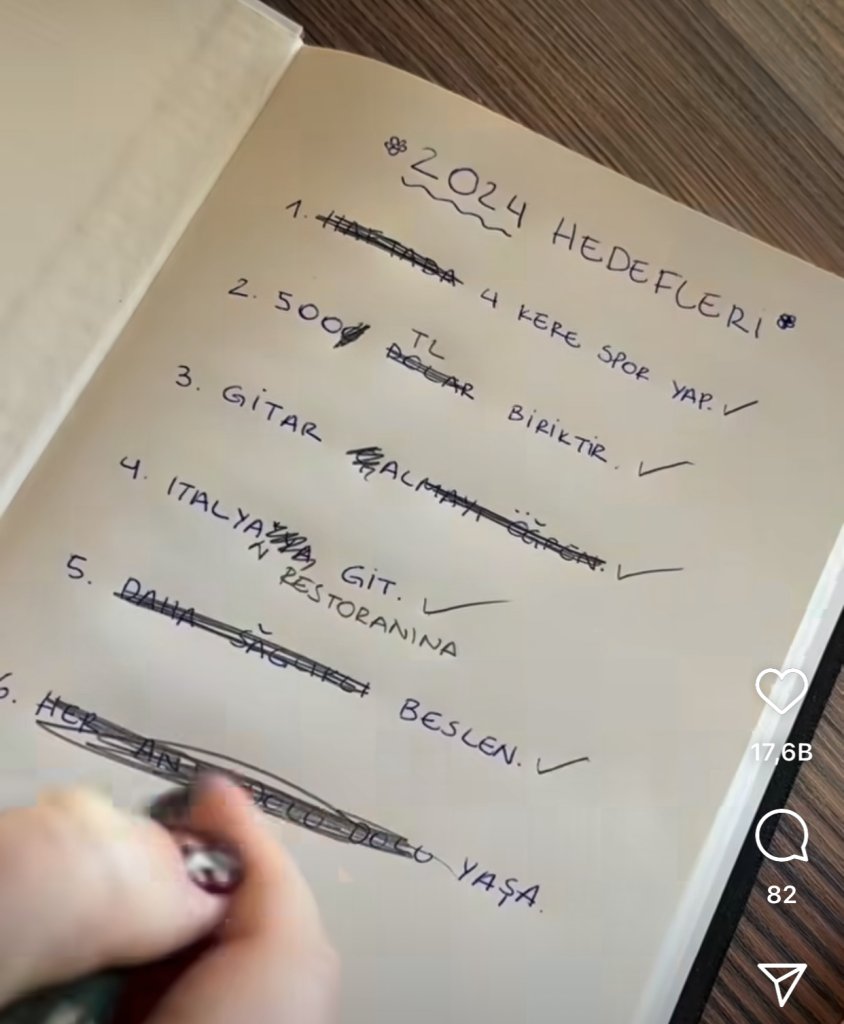 2024 HEDEFLERİ
1. HAFTADA 4 KERE SPOR YAP. ✓
TL
2. 500 DOLAR BİRİKTİR. ✓
3. GİTAR ALMAYI ÖĞREN. ✓
4. ITALYA GİT. ✓
N RESTORANINA
5. DAHA SAĞLIKLI BESLEN. ✓
6. HER AN DOLU DOLU YAŞA.
17,6B
82